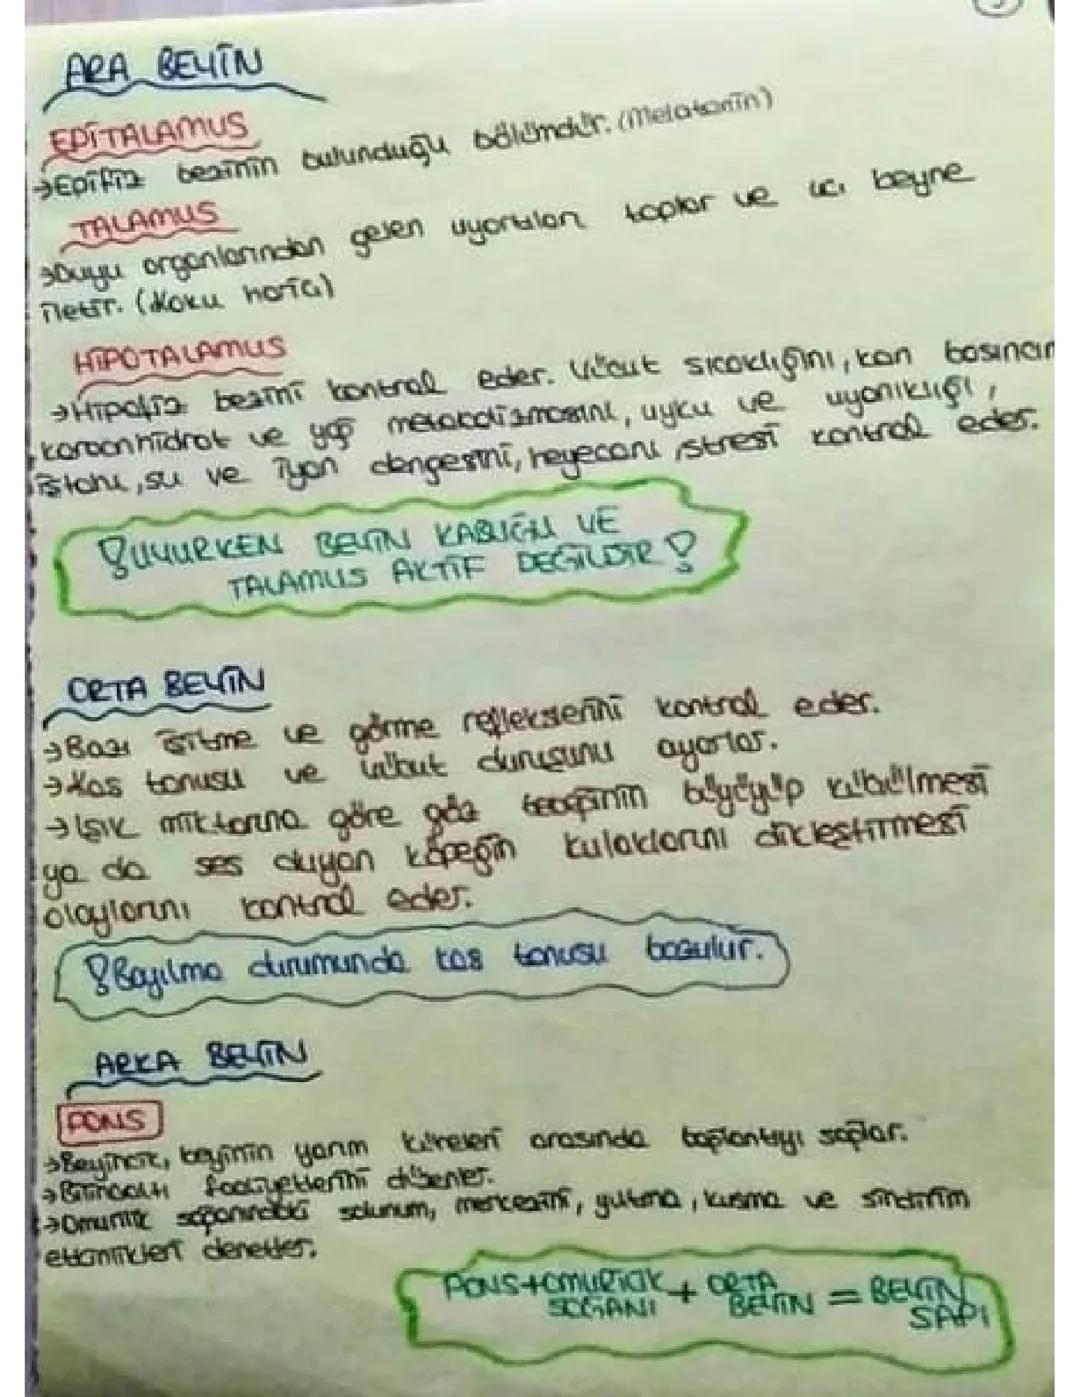 ARA BEYİN
EPİTALAMUS
→Epifiz bezinin bulunduğu bölümdür. (Melatonin)
TALAMUS
→Duyu organlarından gelen uyarıları toplar ve uç beyne
iletir. (Koku harici)
HİPOTALAMUS
→Hipofiz bezini kontrol eder. Vücut sıcaklığını, kan basıncın
karbonhidrat ve yağ metabolizmasını, uyku ve uyanıklığı,
iştahı, su ve iyon dengesini, heyecanı, stresi kontrol eder.
! UYURKEN BEYİN KABUĞU VE
TALAMUS AKTİF DEĞİLDİR !
ORTA BEYİN
→Bazı işitme ve görme reflekslerini kontrol eder.
→Kas tonusu ve vücut duruşunu ayarlar.
→Işık miktarına göre göz bebeğinin büyüyüp küçülmesi
ya da ses duyan köpeğin kulaklarını dikleştirmesi
olaylarını kontrol eder.
! Bayılma durumunda kas tonusu bozulur.
ARKA BEYİN
PONS
→Beyincik, beyinin yarım küreleri arasında bağlantıyı sağlar.
→Bilinçaltı faaliyetlerini düzenler.
→Omurilik soğanındaki solunum, merkezini, yutma, kusma ve sindirim
etkinlikleri denetler.
PONS + OMURİLİK + ORTA = BEYİN
SOĞANI BEYİN SAPI